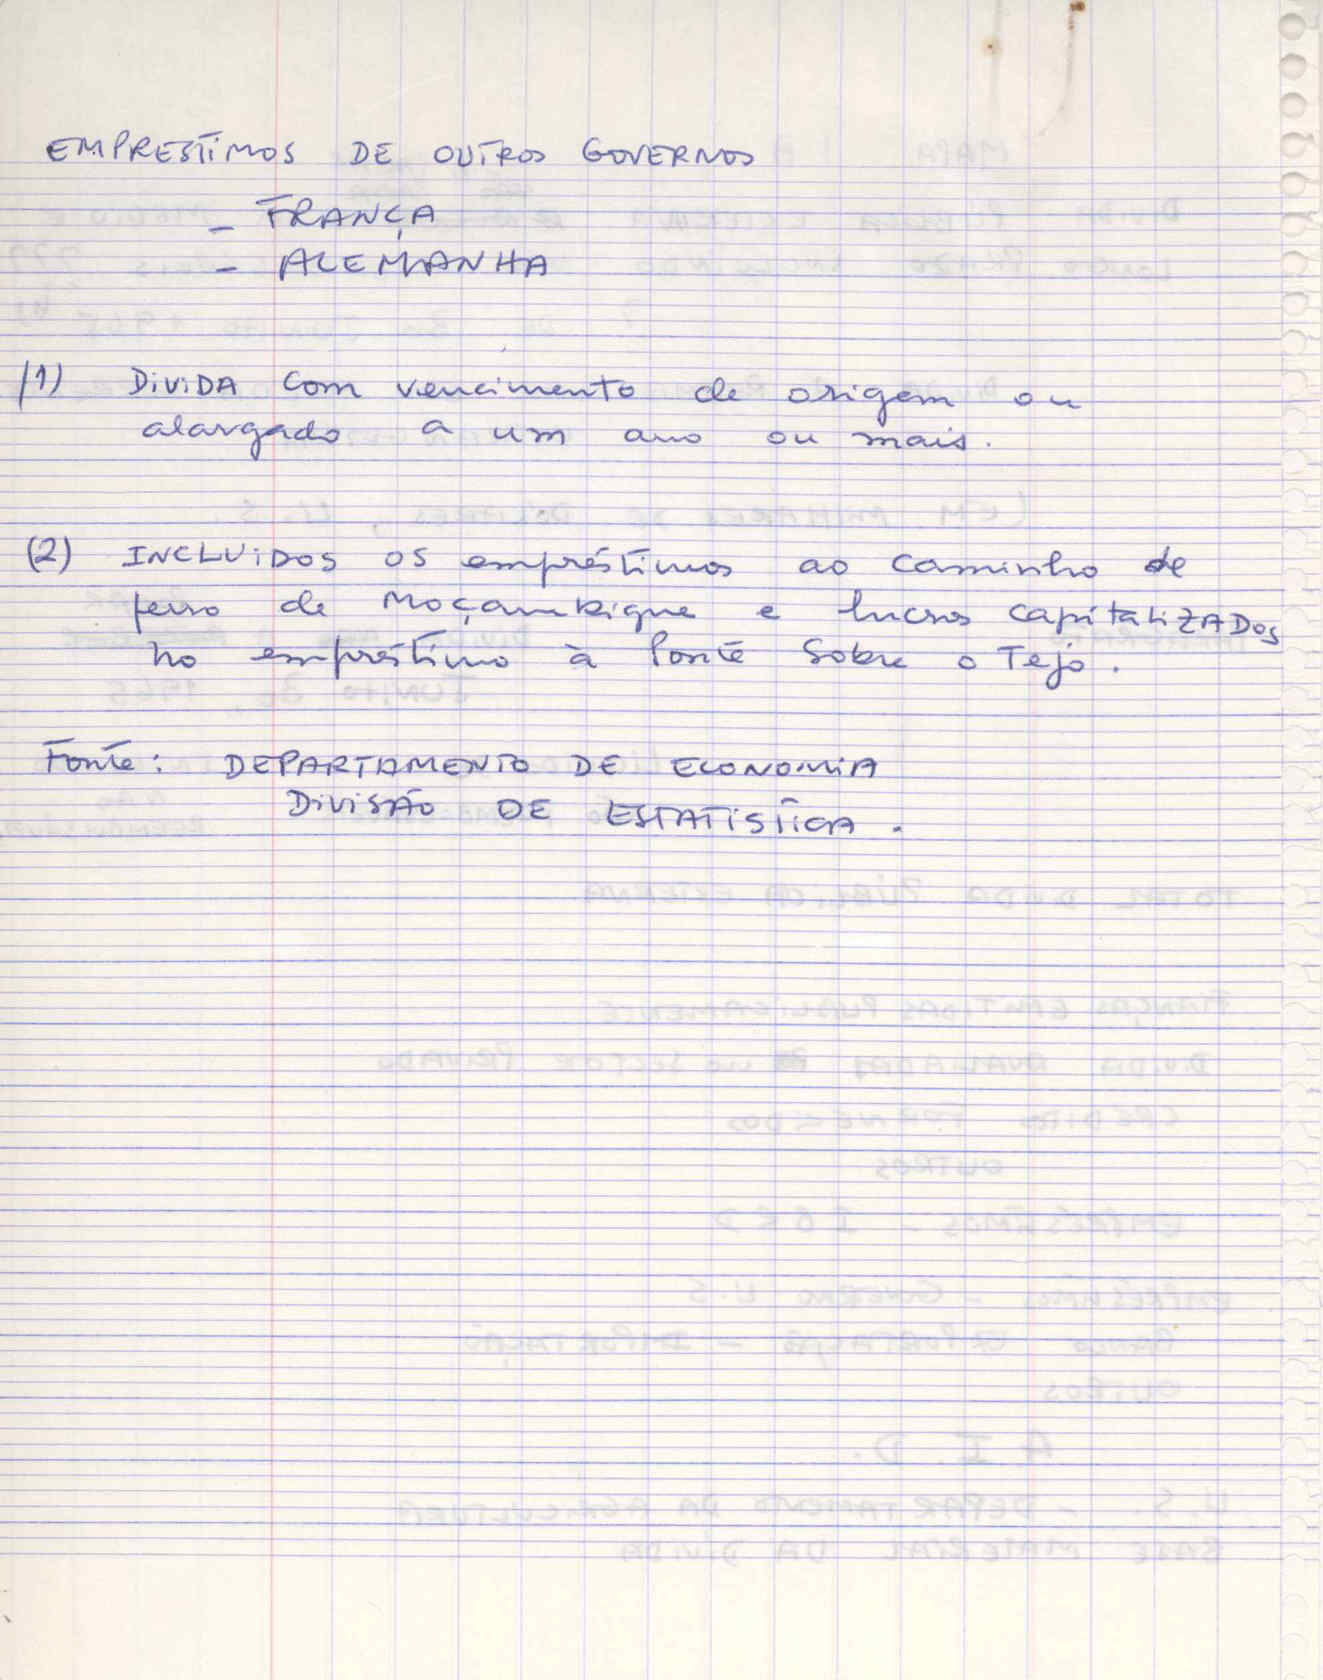 EMPRESTIMOS DE OUTROS GOVERNOS
- FRANÇA
- ALEMANHA
(1) DIVIDA com vencimento de origem ou
alargado a um ano ou mais.
(2) INCLUIDOS OS empréstimos ao caminho de
ferro de Moçambique e lucros capitalizados
no empréstimo à Ponte Sobre o Tejo.
Fonte: DEPARTAMENTO DE ECONOMIA
DIVISÃO DE ESTATISTICA.